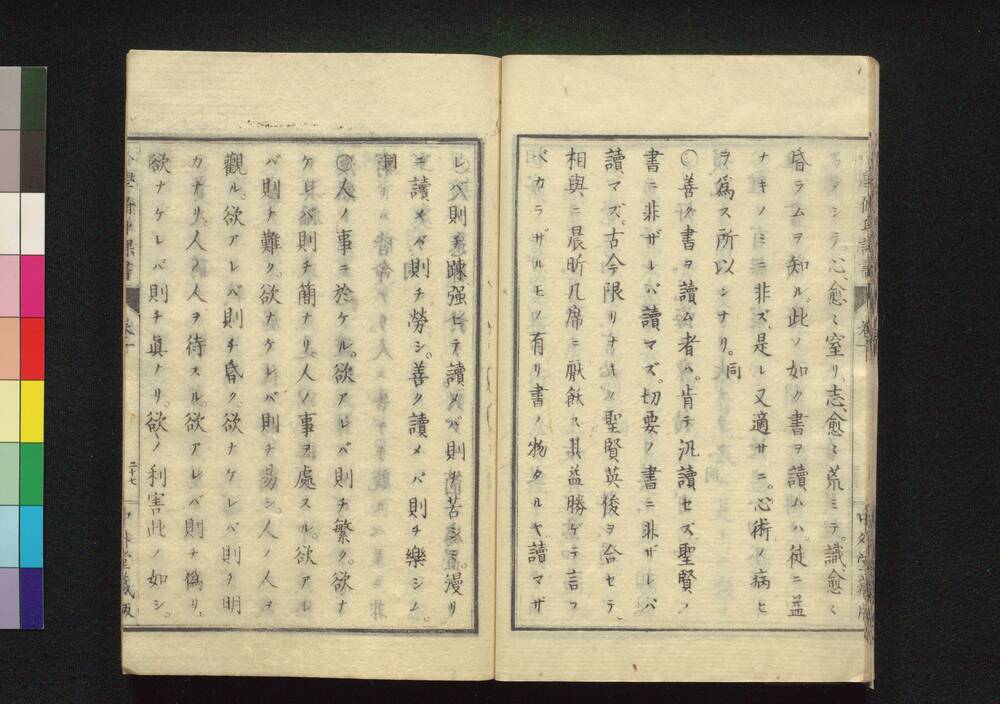 心、愈〻室リ、志、愈〻荒ミテ。識愈〻
昏ラムヲ知ル。此ノ如ク書ヲ讀ムハ。徒ニ益
ナキノミニ非ズ、是レ又適サニ。心術ノ病ヒ
ヲ爲ス所以ンナリ。同
〇善ク書ヲ讀ム者ハ。肯テ汎讀セズ聖賢ノ
書ニ非ザレバ讀マズ。切要ノ書ニ非ザレバ
讀マズ。古今限リナキノ聖賢英俊ヲ合セテ。
相與ニ晨昕几席ニ厭飫ス其益勝ゲテ言フ
ベカラザルモノ有リ書ノ物タルヤ讀マザ
レバ則チ踈强ヒテ讀メバ則チ苦シミ。漫リ
ニ讀メバ則チ勞シ。善ク讀メバ則チ樂シム。
同
〇人ノ事ニ於ケル。欲アレバ則チ繁ク。欲ナ
ケレバ則チ簡ナリ。人ノ事ヲ處スル。欲アレ
バ則チ難ク。欲ナケレバ則チ易シ。人ノ人ヲ
觀ル。欲アレバ則チ昏ク。欲ナケレバ則チ明
カナリ。人ノ人ヲ待スル。欲アレバ則チ僞リ。
欲ナケレバ則チ眞ナリ。欲ノ利害此ノ如シ。
卷一
二十七